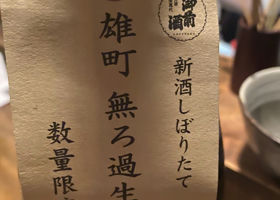 御前
酒
新酒しぼりたて
雄町 無ろ過生
数量限